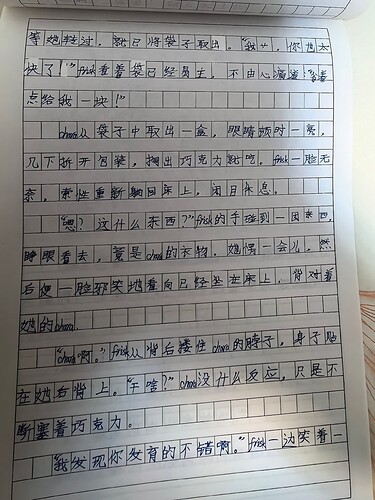 等她转过，就已将袋子取出。"我……，你也太
快了！"frisk看着袋已经易主，不由心演道："省着
点给我一块！"
chara从袋子中取出一盒，眼睛顿时一亮，
几下拆开包装，掏出巧克力就吃，frisk一脸无
奈，索性重新躺回床上，闭目休息。
"嗯？这什么东西？"frisk的手碰到一团东西，
睁眼看去，竟是chara的衣物。她愣一会儿，然
后便一脸邪笑地看向已经坐在床上，背对着
她的chara。
"chara啊。"frisk从背后搂住chara的脖子，身子贴
在她后背上。"干啥？"chara没什么反应，只是不
断塞着巧克力。
"我发现你发育的不错啊。"frisk一边笑着一